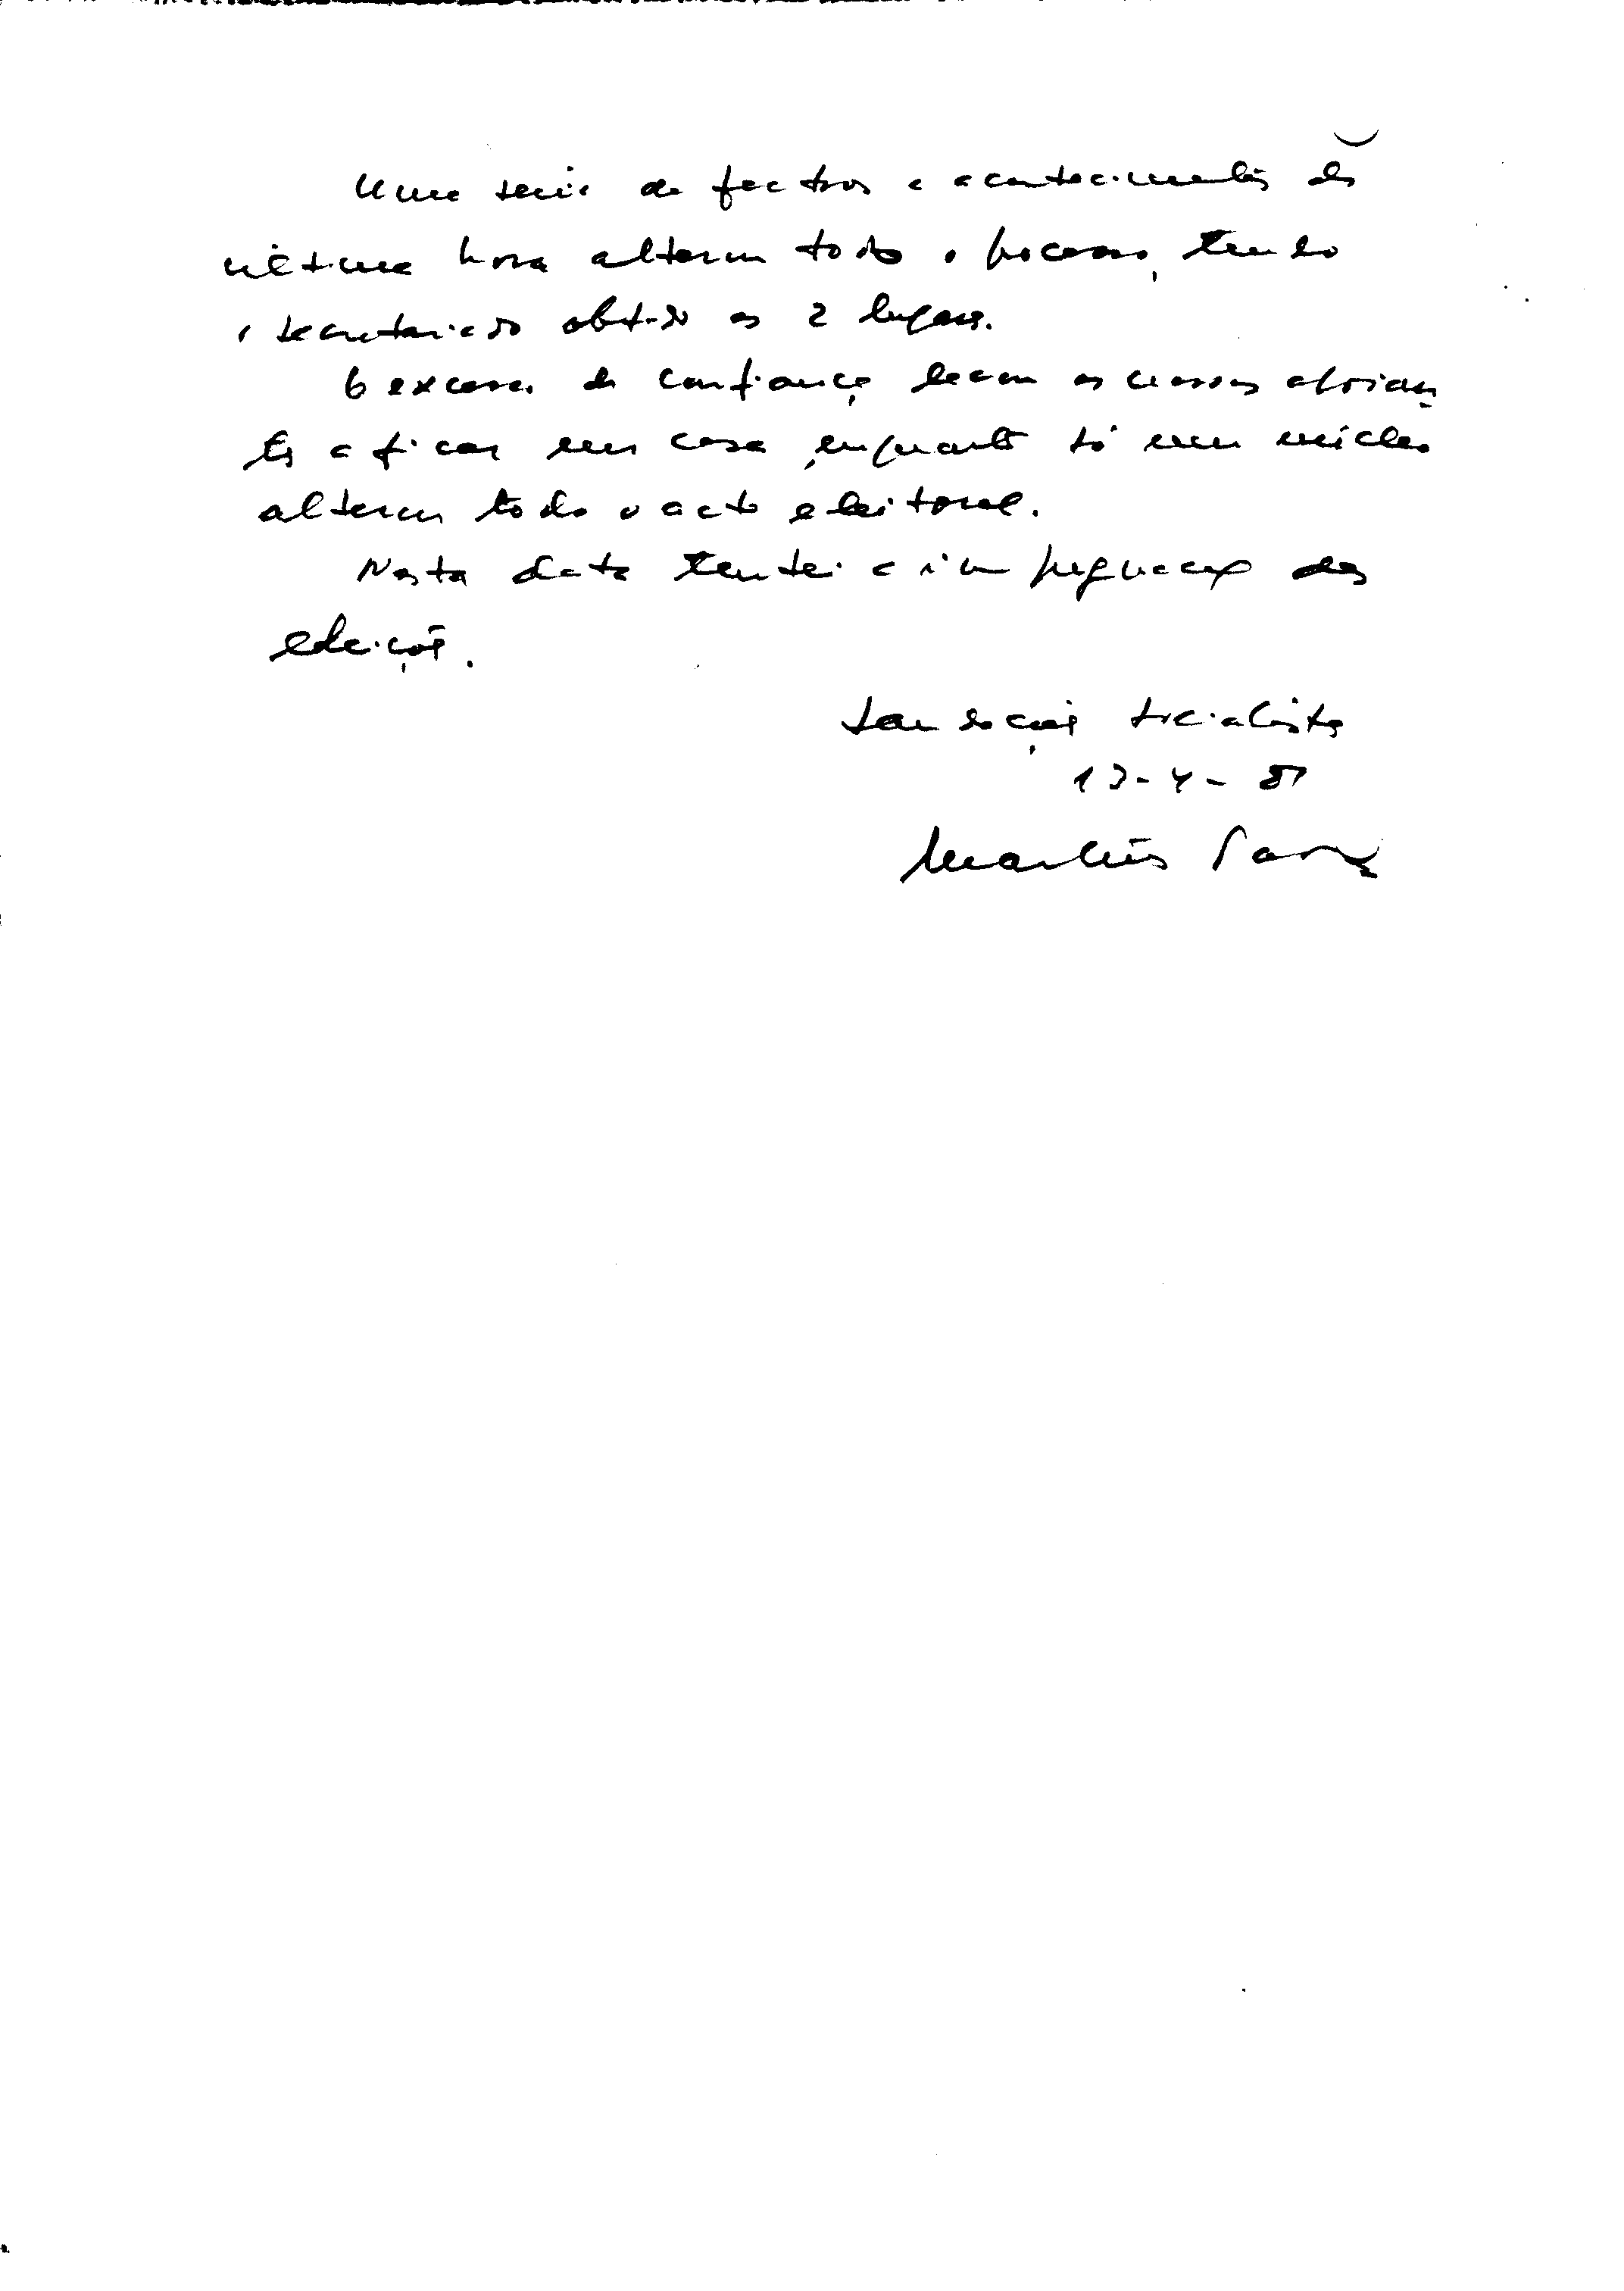 Uma serie de factos e acontecimentos de
última hora alteram todo o processo, tendo
o secretariado obtido os 2 lugares.
O excesso de confiança levam os nossos apoian
tes a ficar em casa, enquanto só um núcleo
alteram todo o acto eleitoral.
Nesta data tentei a impugnação das
eleições.
Saudações socialistas
13-4-81
Martins